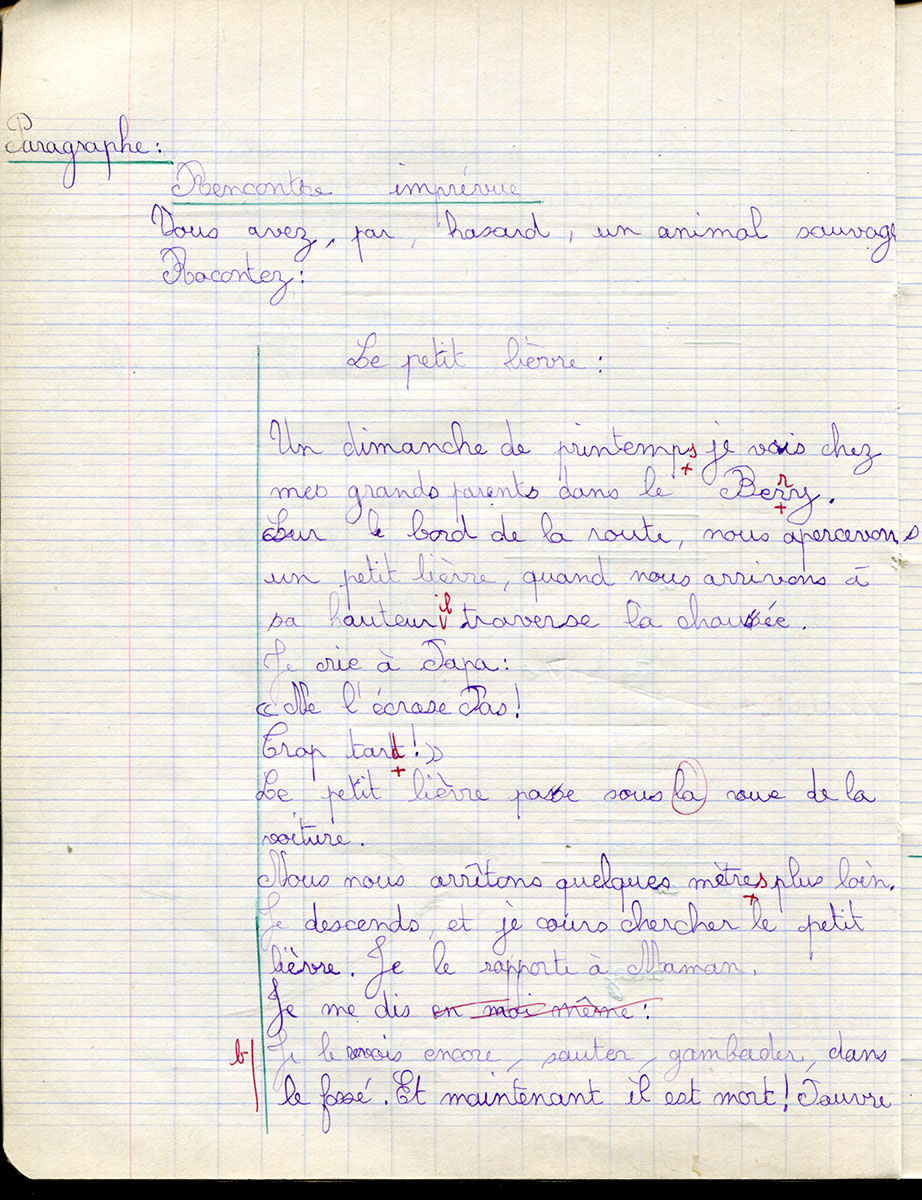 Paragraphe :
Rencontre imprévue
Vous avez, par, hasard, un animal sauvage
Racontez :
Le petit lièvre :
Un dimanche de printemps je vais chez
mes grands parents dans le Berry.
Sur le bord de la route, nous apercevons
un petit lièvre, quand nous arrivons à
sa hauteur il traverse la chaussée.
Je crie à Papa :
« Ne l'écrase Pas !
Trop tard ! »
Le petit lièvre passe sous la roue de la
voiture.
Nous nous arrêtons quelques mètres plus loin.
Je descends, et je cours chercher le petit
lièvre. Je le rapporte à Maman.
Je me dis en moi même :
b Je le revois encore, sauter, gambader, dans
le fossé. Et maintenant il est mort ! Pauvre